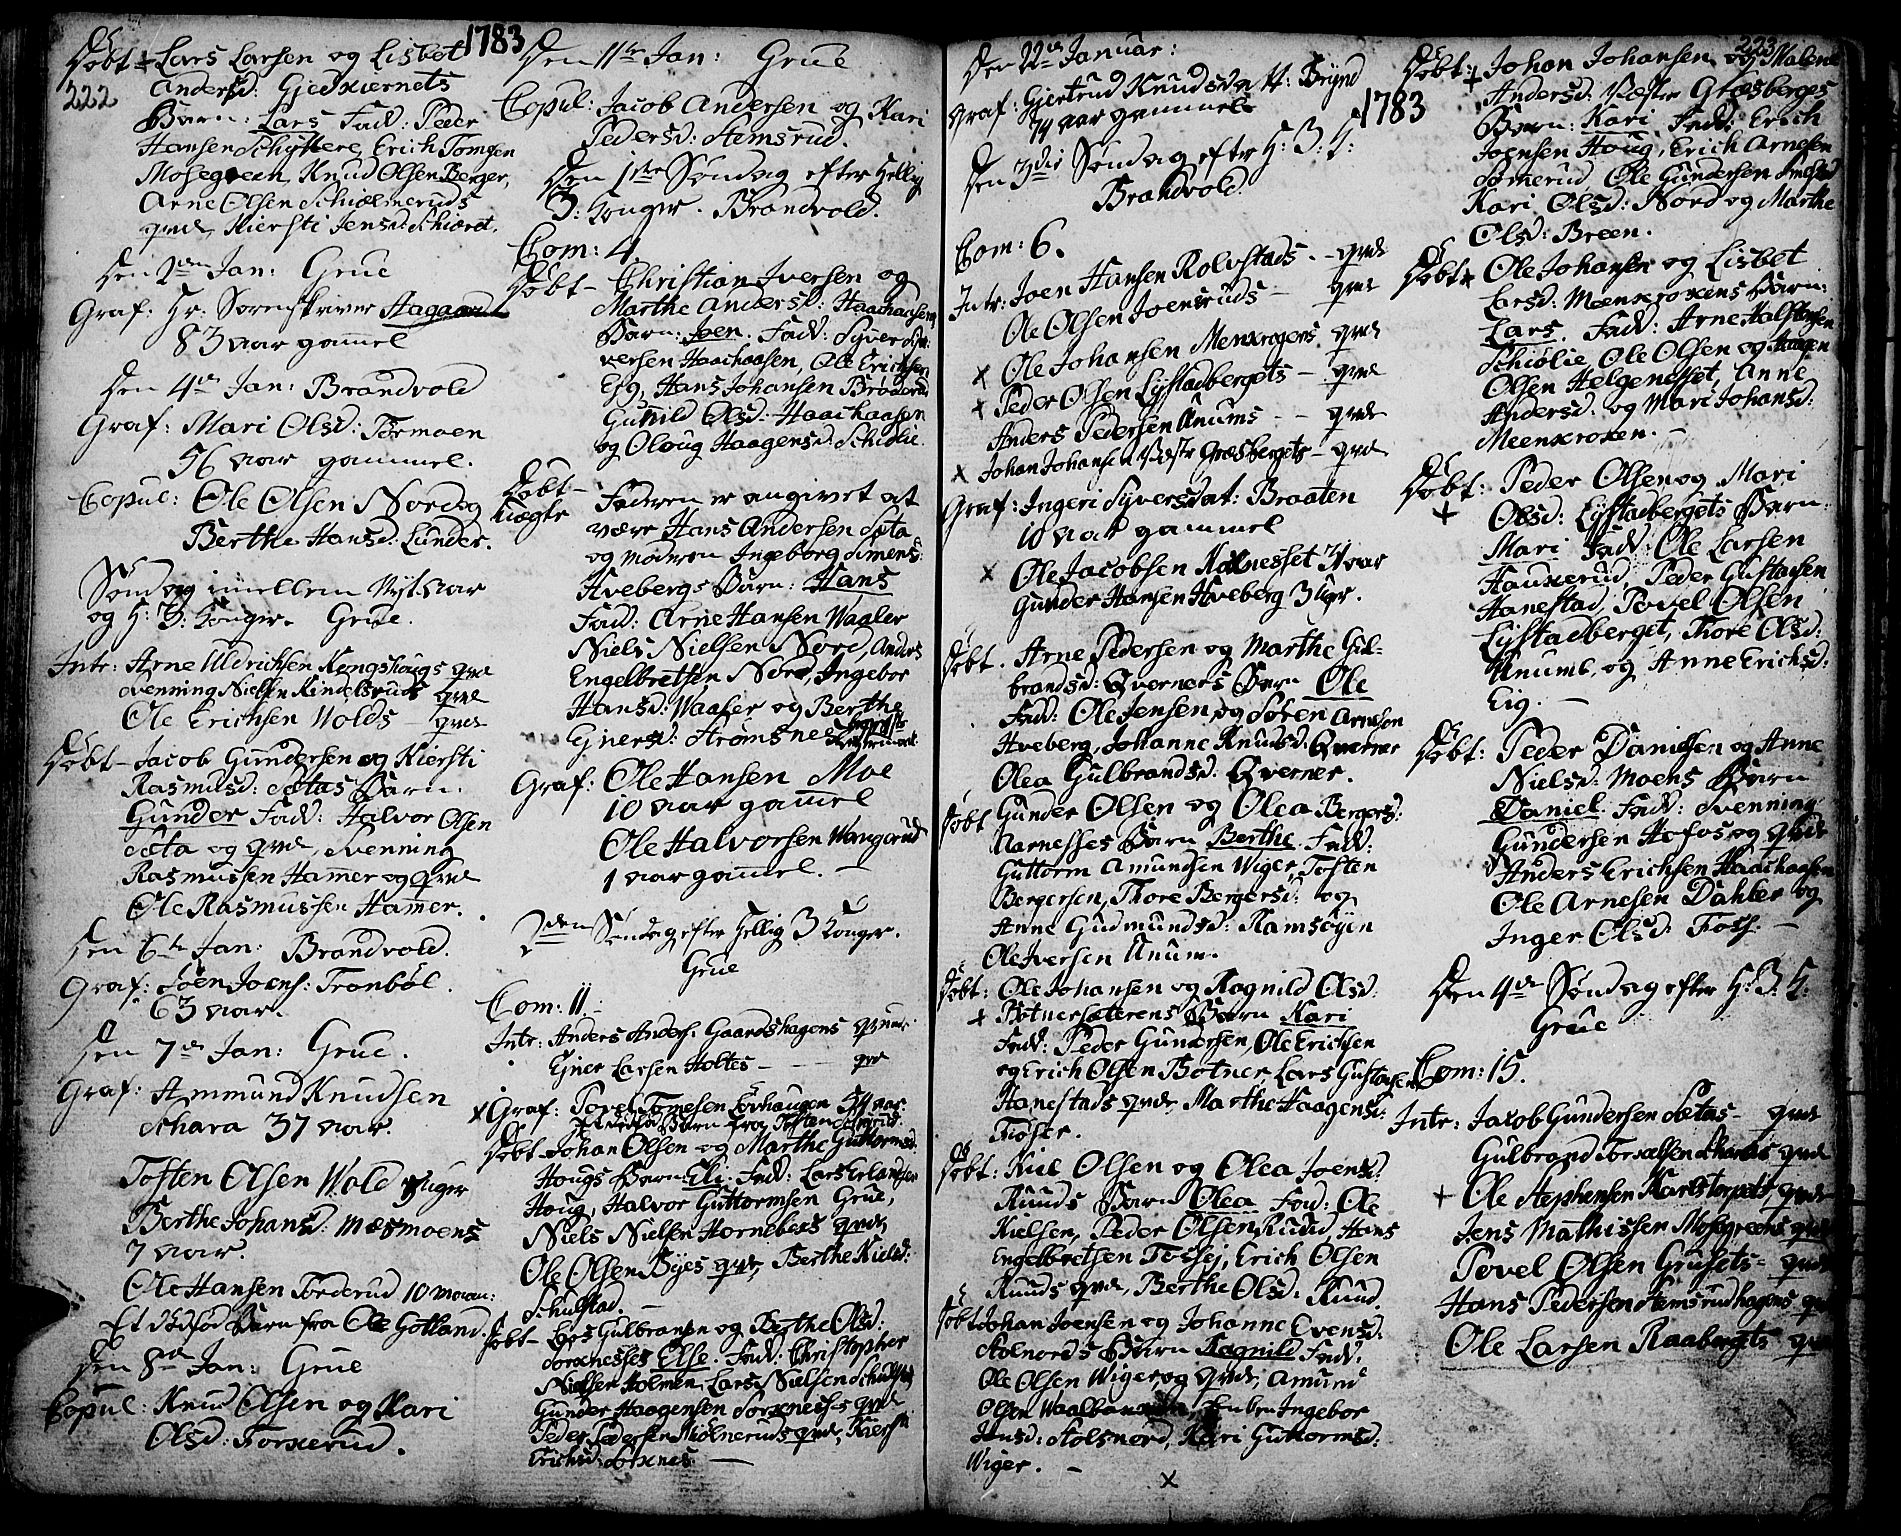 1783
222
Døbt + Lars Larsen og Lisbet
Andersd: Gjedkiernets
Barn: Lars Fadd: Peder
Hansen Schyttere, Erich Tomesen
Mosegreen, Knud Olsen Berger,
Arne Olsen Schiælmeruds
qvde, Kiersti Jensd: Schiæret.
Den 2den Jan: Grue
Graf: Hr: Sornskriver Aagaard
83 aar gammel
Den 4de Jan: Brandvold
Graf: Mari Olsd: Tormoen
56 aar gammel.
Copul: Ole Olsen Nord og
Berthe Hansd: Lunder.
Søndag imellem Nyt aar
og H: 3: Konger. Grue.
Intr: Arne Uldrichsen Kongshougs qvde
Svenning Nielsen Kindelsruds qvde
Ole Erichsen Wolds - qvde
Døbt - Jacob Gundersen og Kiersti
Rasmusd: Sætas Barn:
Gunder Fadd: Halvor Olsen
Sæta og qvde, Svenning
Rasmussen Hamer og qvde
Ole Rasmussen Hamer.
Den 6te Jan: Brandvold.
Graf: Joen Joens: Tronbøl.
63 aar.
Den 7de Jan: Grue.
Graf: Ammund Knudsen
Schara 37 aar.
Tosten Olsen Wold uger
Berthe Johansd: Mæsmoens
7 aar.
Ole Hansen Torderud 10 maan:
Et dødfød Barn fra Ole Gotland.
Den 8de Jan: Grue
Copul: Knud Olsen og Kari
Olsd: Torkerud.
Den 11te Jan: Grue
Copul: Jacob Andersen og Kari
Pedersd: Stemsrud.
Den 1ste Søndag efter Hellig
3: Konger. Brandvold.
Com: 4.
Døbt - Christian Iversen og
Marthe Andersd: Haachaasens
Barn: Joen. Fadd: Syver
versen Haachaasen, Ole Erichsen
Eig, Hans Johansen Bruderud
Gunild Olsd: Haachaasen
og Oloug Haagensd: Schiølie.
Døbt -
Uægte
Faderen er angivet at
være Hans Andersen Sæta
og moderen Ingeborg Simens:
Hvebergs Barn: Hans
Fadd: Arne Hansen Waaler
Niels Nielsen Nord, Anders
Engelbretsen Nord, Ingebor
Hansd: Waaler og Berthe
Ejnersd: Strømsnes
Graf: Ole Hansen Moe
10 aar gammel
Ole Halvorsen Wangerud
1 aar gammel. -
2den Søndag efter Hellig 3 Konger.
Grue
Com: 11.
Intr: Anders Anders: Gaardshagens qvinde
Ejner Larsen Holtes - qvde
x Graf: Povel Tomesen Løvhaugen 54 aar
Et dødfød Barn fra
Døbt - Johan Olsen og Marthe Guttormsd:
Hougs Barn: Eli. Fadd: Lars Erlandsen
Houg, Halvor Guttormsen Grue,
Niels Nielsen Hornebers qvde
Ole Olsen Byes qvde, Berthe Kield:
Schulstad. -
Døbt - Lars Gulbransen og Berthe Olsd:
Torknesses Else. Fadd: Christopher
Nielsen Holmen, Lars Nielsen Schulstad
Gunder Haagensen Torknesses qvde
Peder Pedersen Mølneruds qvde, Kiersti
Erichsd: Torknes -
Den 22de Januar:
Graf: Giertrud Knudsdatt: Brynd
74 aar gammel
1783
Den 3die Søndag efter H: 3: K:
Brandvold.
Com: 6.
Intr: Joen Hansen Rolvstads - qvde
Ole Olsen Joensruds - qvde
x Ole Johansen Menkrogens qvde
x Peder Olsen Lystadbergets - qvde
Anders Pedersen Knums - - qvde
x Johan Johansen Vestre Græsbergets - qvde
Graf: Ingeri Syversdat: Braaten
10 aar gammel
x Ole Jacobsen Kalnesset aar
Gunder Hansen Hveberg 3 uger.
Døbt. Arne Pedersen og Marthe Gul-
brandsd: Qverners Barn Ole
Fadd: Ole Jensen og Soren Arnesen
Hveberg, Johanne Knudsd: Qverner
Olea Gulbrandsd: Qverner.
Døbt Gunder Olsen og Olea Bergersd:
Narnesses Barn Berthe. Fadd:
Guttorm Amundsen Wiger, Tosten
Bergersen, Thore Bergersd: og
Anne Gudmundsd: Ramsøyen
Ole Iversen Knum.
Døbt: Ole Johansen og Ragnild Olsd:
+ Botnersæterens Barn Kari
Fadd: Peder Gundersen, Ole Erichsen
og Erich Olsen Botner, Lars Gustavsen
Hanestads qvde, Marthe Haagensd:
Frøser.
Døbt: Kiel Olsen og Olea Joensd:
Ruuds Barn Olea Fad: Ole
Kielsen, Peder Olsen Ruud, Hans
Engelbretsen Fossej, Erich Olsen
Ruuds qvde, Berthe Olsd: Ruud.
Døbt Johan Joensen og Johanne Evensd:
Stolnords Barn Ragnild Fadd.
Ole Olsen Wiger og qvde, Amund
Olsen Ingebor
Jensd: Stolsnord, Kari Guttormsd:
Wiger. -
x
223
Døbt: + Johan Johansen og Malene
Andersd: Vestre Græsberges
Barn: Kari Fadd: Erich
Joensen Houg, Erich Arnesen
Sømerud Ole Gundersen
Kari Olsd: Nord og Marthe
Olsd: Breen.
Døbt + Ole Johansen og Lisbet
Larsd: Meenkrokens Barn:
Lars. Fadd: Arne Halstensen
Schiølie Ole Olsen og Haagen
Olsen Helgenesset, Anne
Andersd: og Mari Johansd:
Meenkroken. -
Døbt: + Peder Olsen og Mari
Olsd: Lystadbergets Barn.
Mari Fadd: Ole Larsen
Haukerud, Peder Gustavsen
Hanestad, Povel Olsen
Lystadberget, Thore Olsd:
Knum, og Anne Erichsd:
Eig. -
Døbt: Peder Danielsen og Anne
Nielsd: Moens Barn
Daniel Fadd: Svenning
Gundersen Hofos og qvde
Anders Erichsen Haachaasen
Ole Arnesen Dahler og
Inger Olsd: Foss. -
Den 4de Søndag efter H: 3: K:
Grue
Com: 15.
Intr: Jacob Gundersen Sætas - qvde
Gulbrand Torkelsen Scharas qvde
+ Ole Stephensen Karlstorpets qvde
Jens Mathissen Mosegreens qvde
Povel Olsen Grusets - qvde
Hans Pedersen Stemsrudhagens qvde
Ole Larsen Raabergets qvde